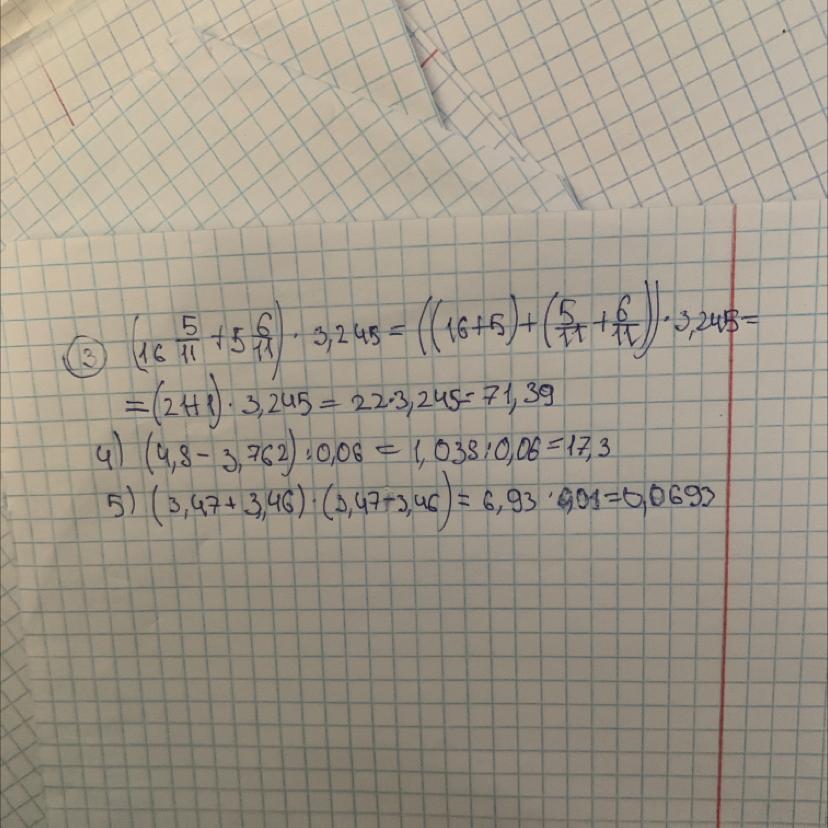 3 (16 5/11 + 5 6/11) · 3,245 = ((16+5) + (5/11 + 6/11)) · 3,245 =
= (21+1) · 3,245 = 22·3,245 = 71,39
4) (4,8 - 3,762) : 0,06 = 1,038 : 0,06 = 17,3
5) (3,47 + 3,46) · (3,47 - 3,46) = 6,93 · 0,01 = 0,0693